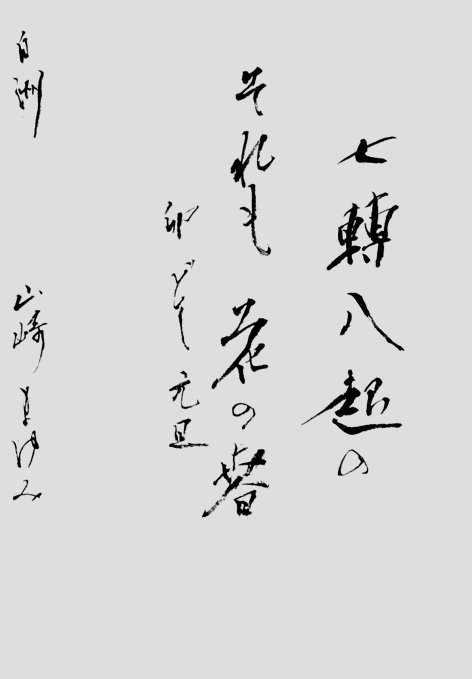 七轉八起の
それも花の春
卯どし元旦
白洲
山崎まゆみ